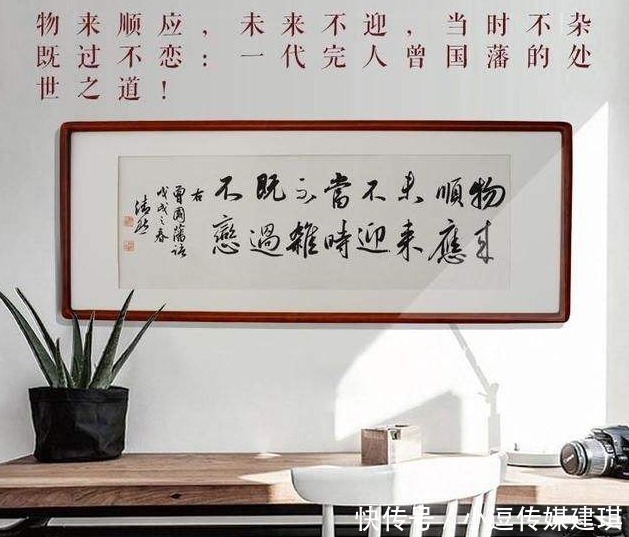 物来顺应,未来不迎,当时不杂
既过不恋:一代完人曾国藩的处
世之道!
物来
順應
未来
不迎
當時
不雜
既過
不戀
右
曾國藩語
戊戌之春
快传号 / 小逗传媒建琪